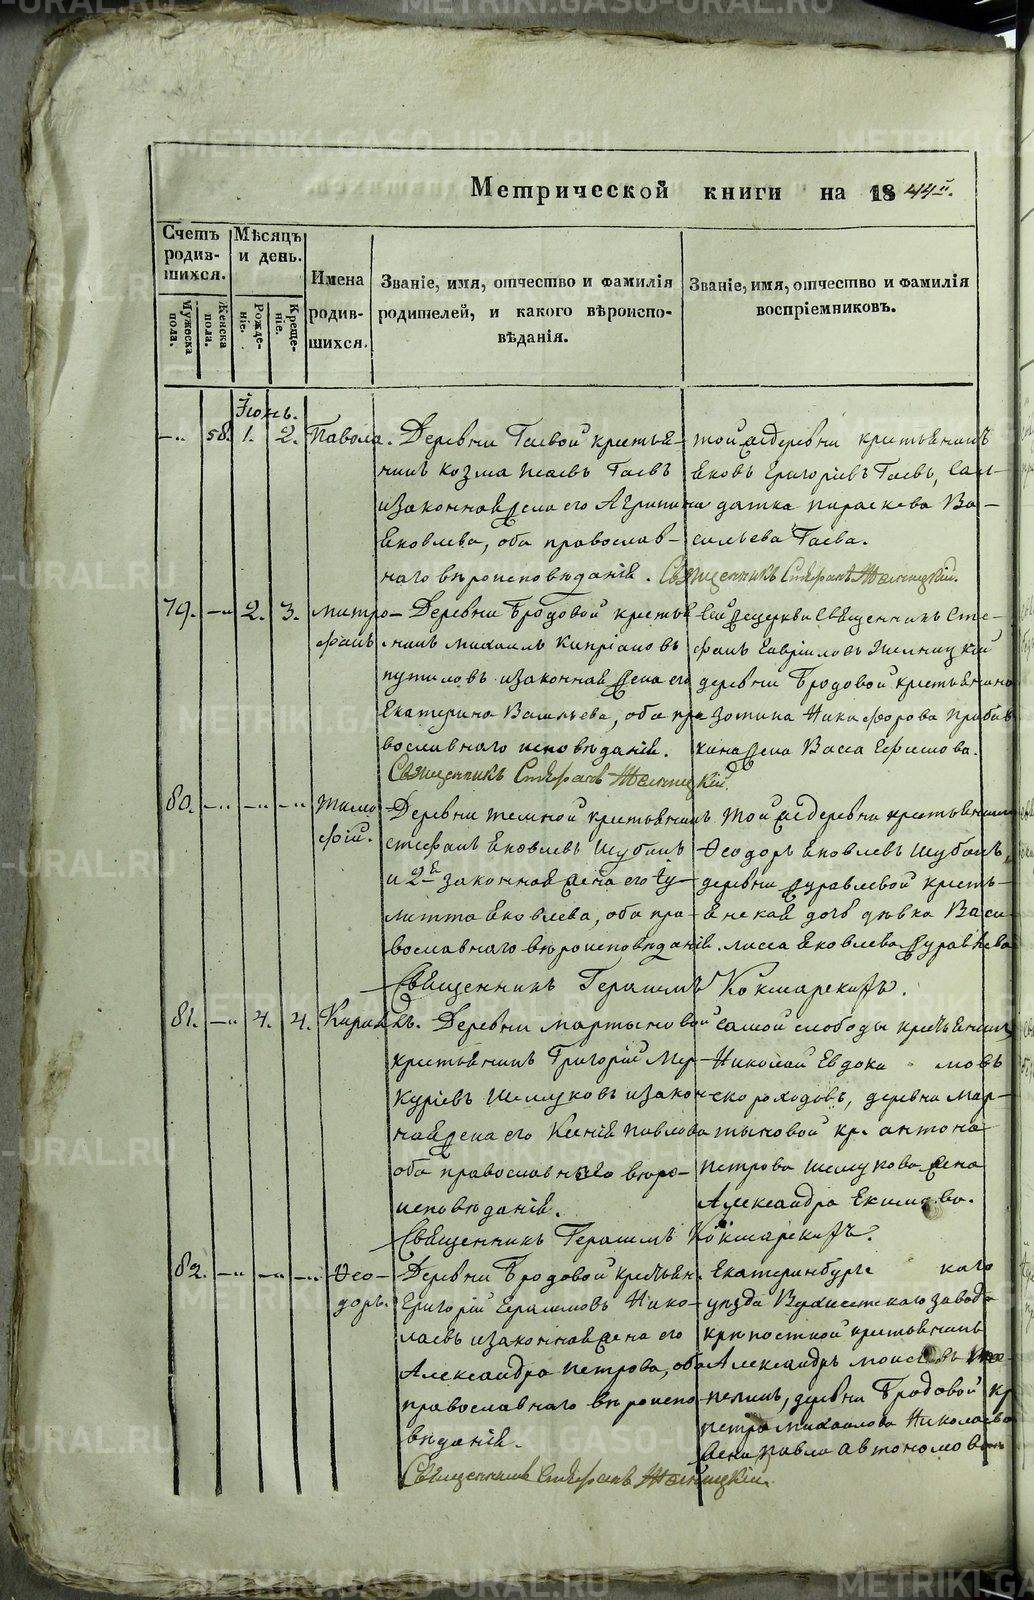 METRIKI.GASO-URAL.RU
Метрической книги на 1844й.
Счетъ родив-шихся.
Мужеска пола.
Женска пола.
Мѣсяцъ и день.
Рожде-ніе.
Креще-ніе.
Имена родив-шихся.
Званіе, имя, отчество и фамилія
родителей, и какого вѣроиспо-
вѣданія.
Званіе, имя, отчество и фамилія
воспріемниковъ.
Іюнь.
58. 1. 2. Павола. Деревни Гаевой крестья-
нинъ Козма Исаевъ Гаевъ
и законная жена его Агрипина
Яковлева, оба православ-
наго вѣроисповѣданія.
той же деревни крестьянинъ
Яковъ Григорьевъ Гаевъ, сол-
датка Параскева Ва-
сильева Гаева.
Священникъ Стефанъ
79. 2. 3. Митро-
фанъ
Деревни Бродовой крестья-
нинъ Михаилъ Кипріановъ
Путиловъ и законная жена его
Екатерина Васильева, оба пра-
вославнаго исповѣданія.
Сей же церкви Священникъ Сте-
фанъ Гавріиловъ
деревни Бродовой крестьянина
Зотика Никифорова
жена Васса Ефимова.
Священникъ Стефанъ
80. Тимо-
фей.
Деревни Темной крестьянинъ
Стефанъ Яковлевъ Шубинъ
и 2я законная жена его Іу-
литта Яковлева, оба пра-
вославнаго вѣроисповѣданія.
Той же деревни крестьянинъ
Ѳеодоръ Яковлевъ Шубинъ,
деревни Журавлевой кресть-
янская дочь дѣвка Васи-
лисса Яковлева Журавлева
Священникъ Герасимъ Кокшарскихъ.
81. 4. 4. Кирикъ. Деревни Мартыновой
крестьянинъ Григорій Мер-
куріевъ Шелуковъ и закон-
ная жена его Ксенія Павлова
оба православнаго вѣро-
исповѣданія.
Самой слободы крестьянинъ
Николай Евдокимовъ
Скороходовъ, деревни Мар-
тыновой кр. Антона
Петрова Шелукова жена
Александра Екимова.
Священникъ Герасимъ Кокшарскихъ.
82. Ѳео-
доръ.
Деревни Бродовой крестьян.
Григорій Герасимовъ Нико-
лаевъ и законная жена его
Александра Петрова, оба
православнаго вѣроиспо-
вѣданія.
Екатеринбургскаго
уѣзда Верхисетскаго завода
крѣпостной крестьянинъ
Александръ Моисеевъ
деревни Бродовой кр
Петра Михаилова Николаева
жена Павла Автономова
Священникъ Стефанъ